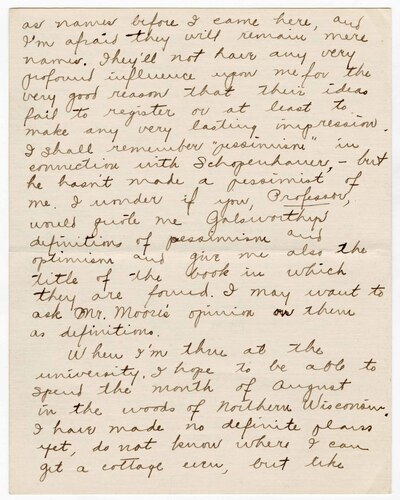 as names before I came here, and
I'm afraid they will remain mere
names. They'll not have any very
profound influence upon me for the
very good reason that their ideas
fail to register or at least to
make any very lasting impression.
I shall remember "pessimism" in
connection with Schopenhauer, - but
he hasn't made a pessimist of
me. I wonder if you, Professor,
would quote me Galsworthy's
definitions of pessimism and
optimism and give me also the
title of the book in which
they are found. I may want to
ask Mr. Moore's opinion on them
as definitions.
When I'm thru at the
university, I hope to be able to
spend the month of August
in the woods of Northern Wisconsin.
I have made no definite plans
yet, do not know where I can
get a cottage even, but like